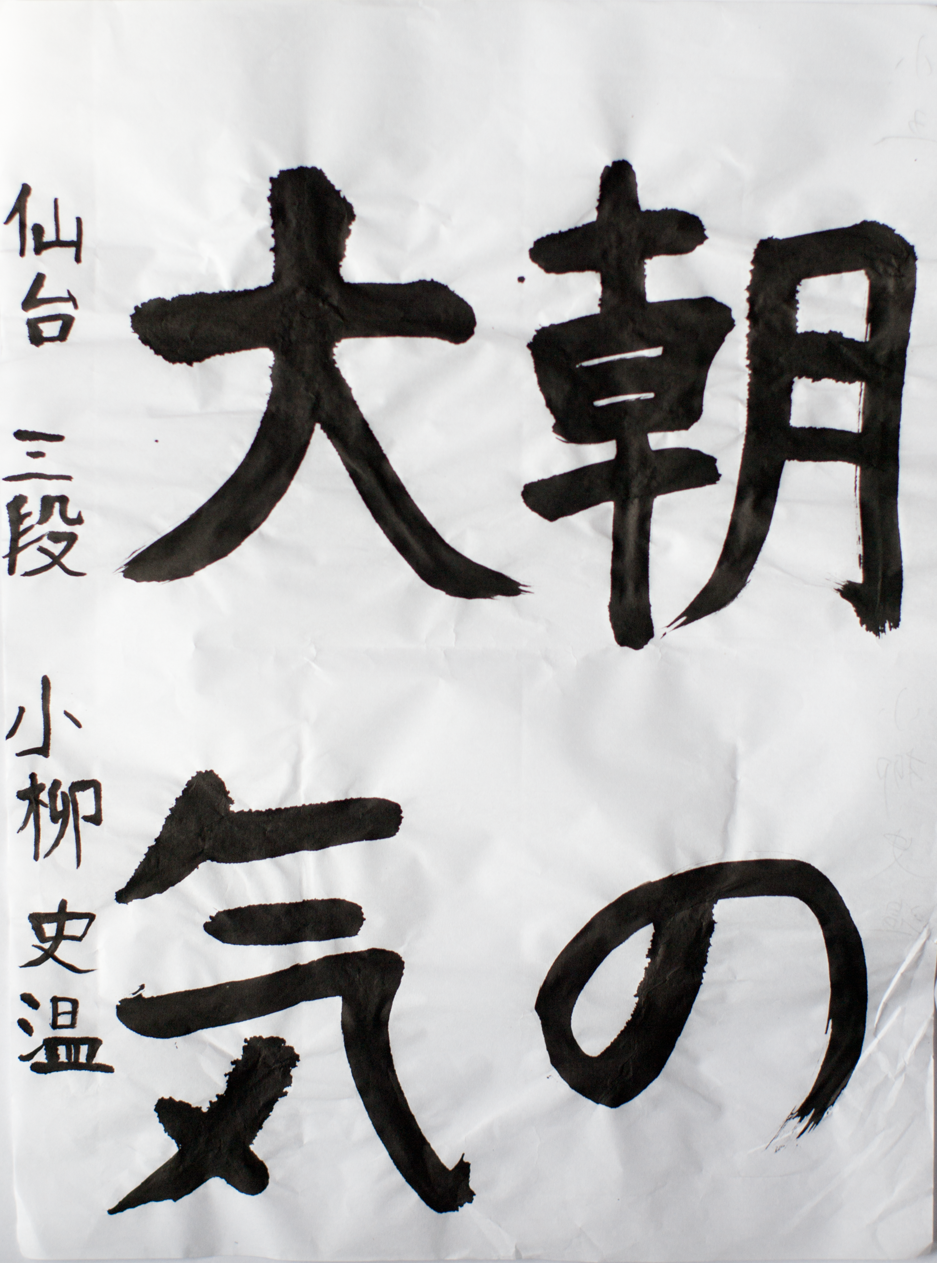 朝の
大気
仙台 三段 小柳 史温